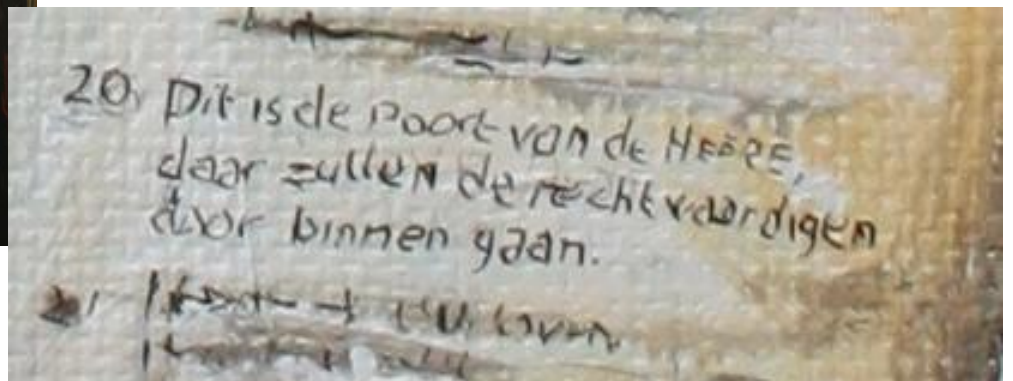 20. Dit is de Poort van de HEERE,
daar zullen de rechtvaardigen
door binnen gaan.
loven